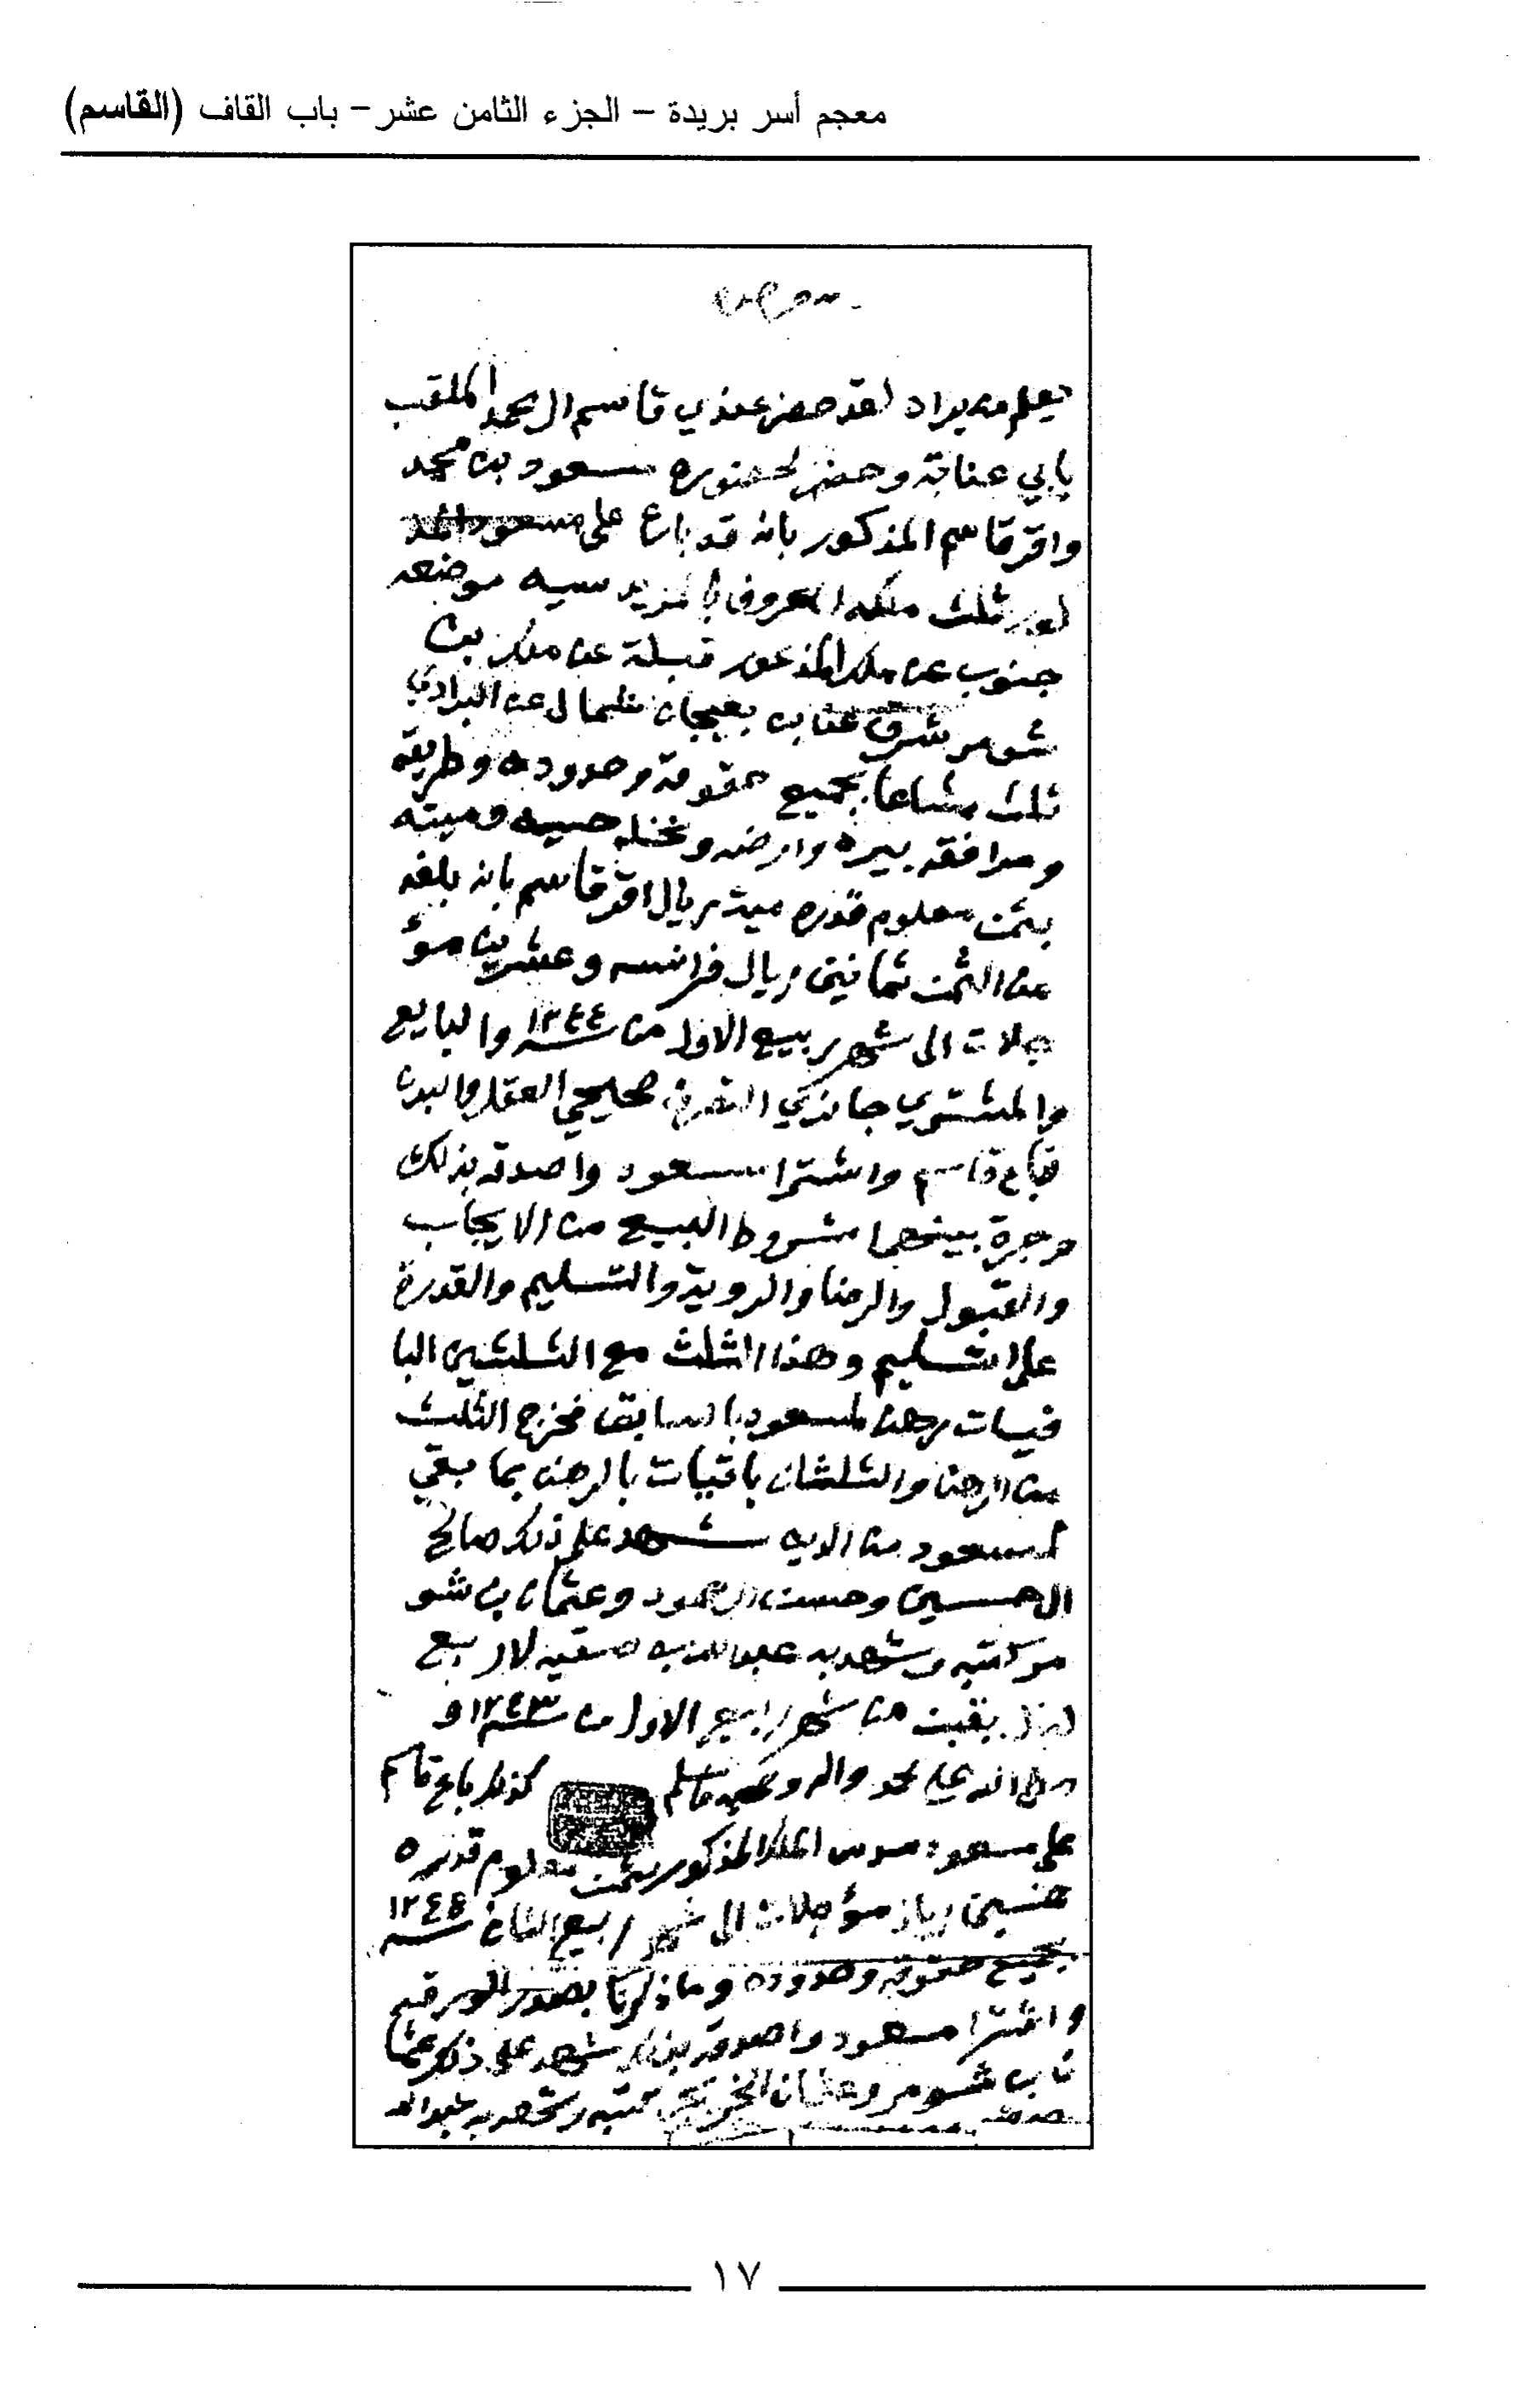 معجم أسر بريدة – الجزء الثامن عشر – باب القاف (القاسم)
يعلم من يراه لقد حضر عندي قاسم ال محمد الملقب
بابي عناقة وحضر لحضوره مسعود بن محمد
واقر قاسم المذكور بانه قد باع على مسعود المذ
كور ثلث ملكه المعروف موضعه
جنوب عن ملك قبلة عن ملك بن
شومر شرق عن بن بعيجان شمال عن البرادي
ثلث مشاعا بجميع حقوقه وحدوده وطريقه
ومرافقه بيره وارضه ونخله حييه وميته
بثمن معلوم قدره مية ريال اقر قاسم بانه بلغه
من الثمن ثمانين ريال فرانسه وعشرين مؤ
جلات الى شهر ربيع الاول من سنة ١٢٤٤ والبايع
والمشتري جايزي التصرف صحيحي العقل والبدن
فباع قاسم واشترا مسعود واصدقه بذلك
وجرة بينهما شروط البيع من الايجاب
والقبول والرضا والروية والتسليم والقدرة
على التسليم وهذا الثلث مع الثلثين البا
قيات رهن لمسعود بالسابق فخرج الثلث
من الرهن والثلثان باقيات بالرهن بما بقي
لمسعود من الدين شهد على ذلك صالح
ال حسين وحسن ال حمود وعثمان بن شو
مر كتبه وشهد به عبدالله بن صقيه لاربع
بقيت من شهر ربيع الاول من سنة ١٢٤٣ و
صلى الله على محمد واله وصحبه وسلم كذلك باع قاسم
على مسعود سدس الملك المذكور بثمن معلوم قدره
خمسين ريال مؤجلات الى شهر ربيع الثاني سنة ١٢٤٤
بجميع حقوقه وحدوده وما ذكرنا بصدر الورقة
واشترا مسعود واصدقه بذلك شهد على ذلك عثما
ن بن شومر وعثمان كتبه وشهد به عبدالله
١٧